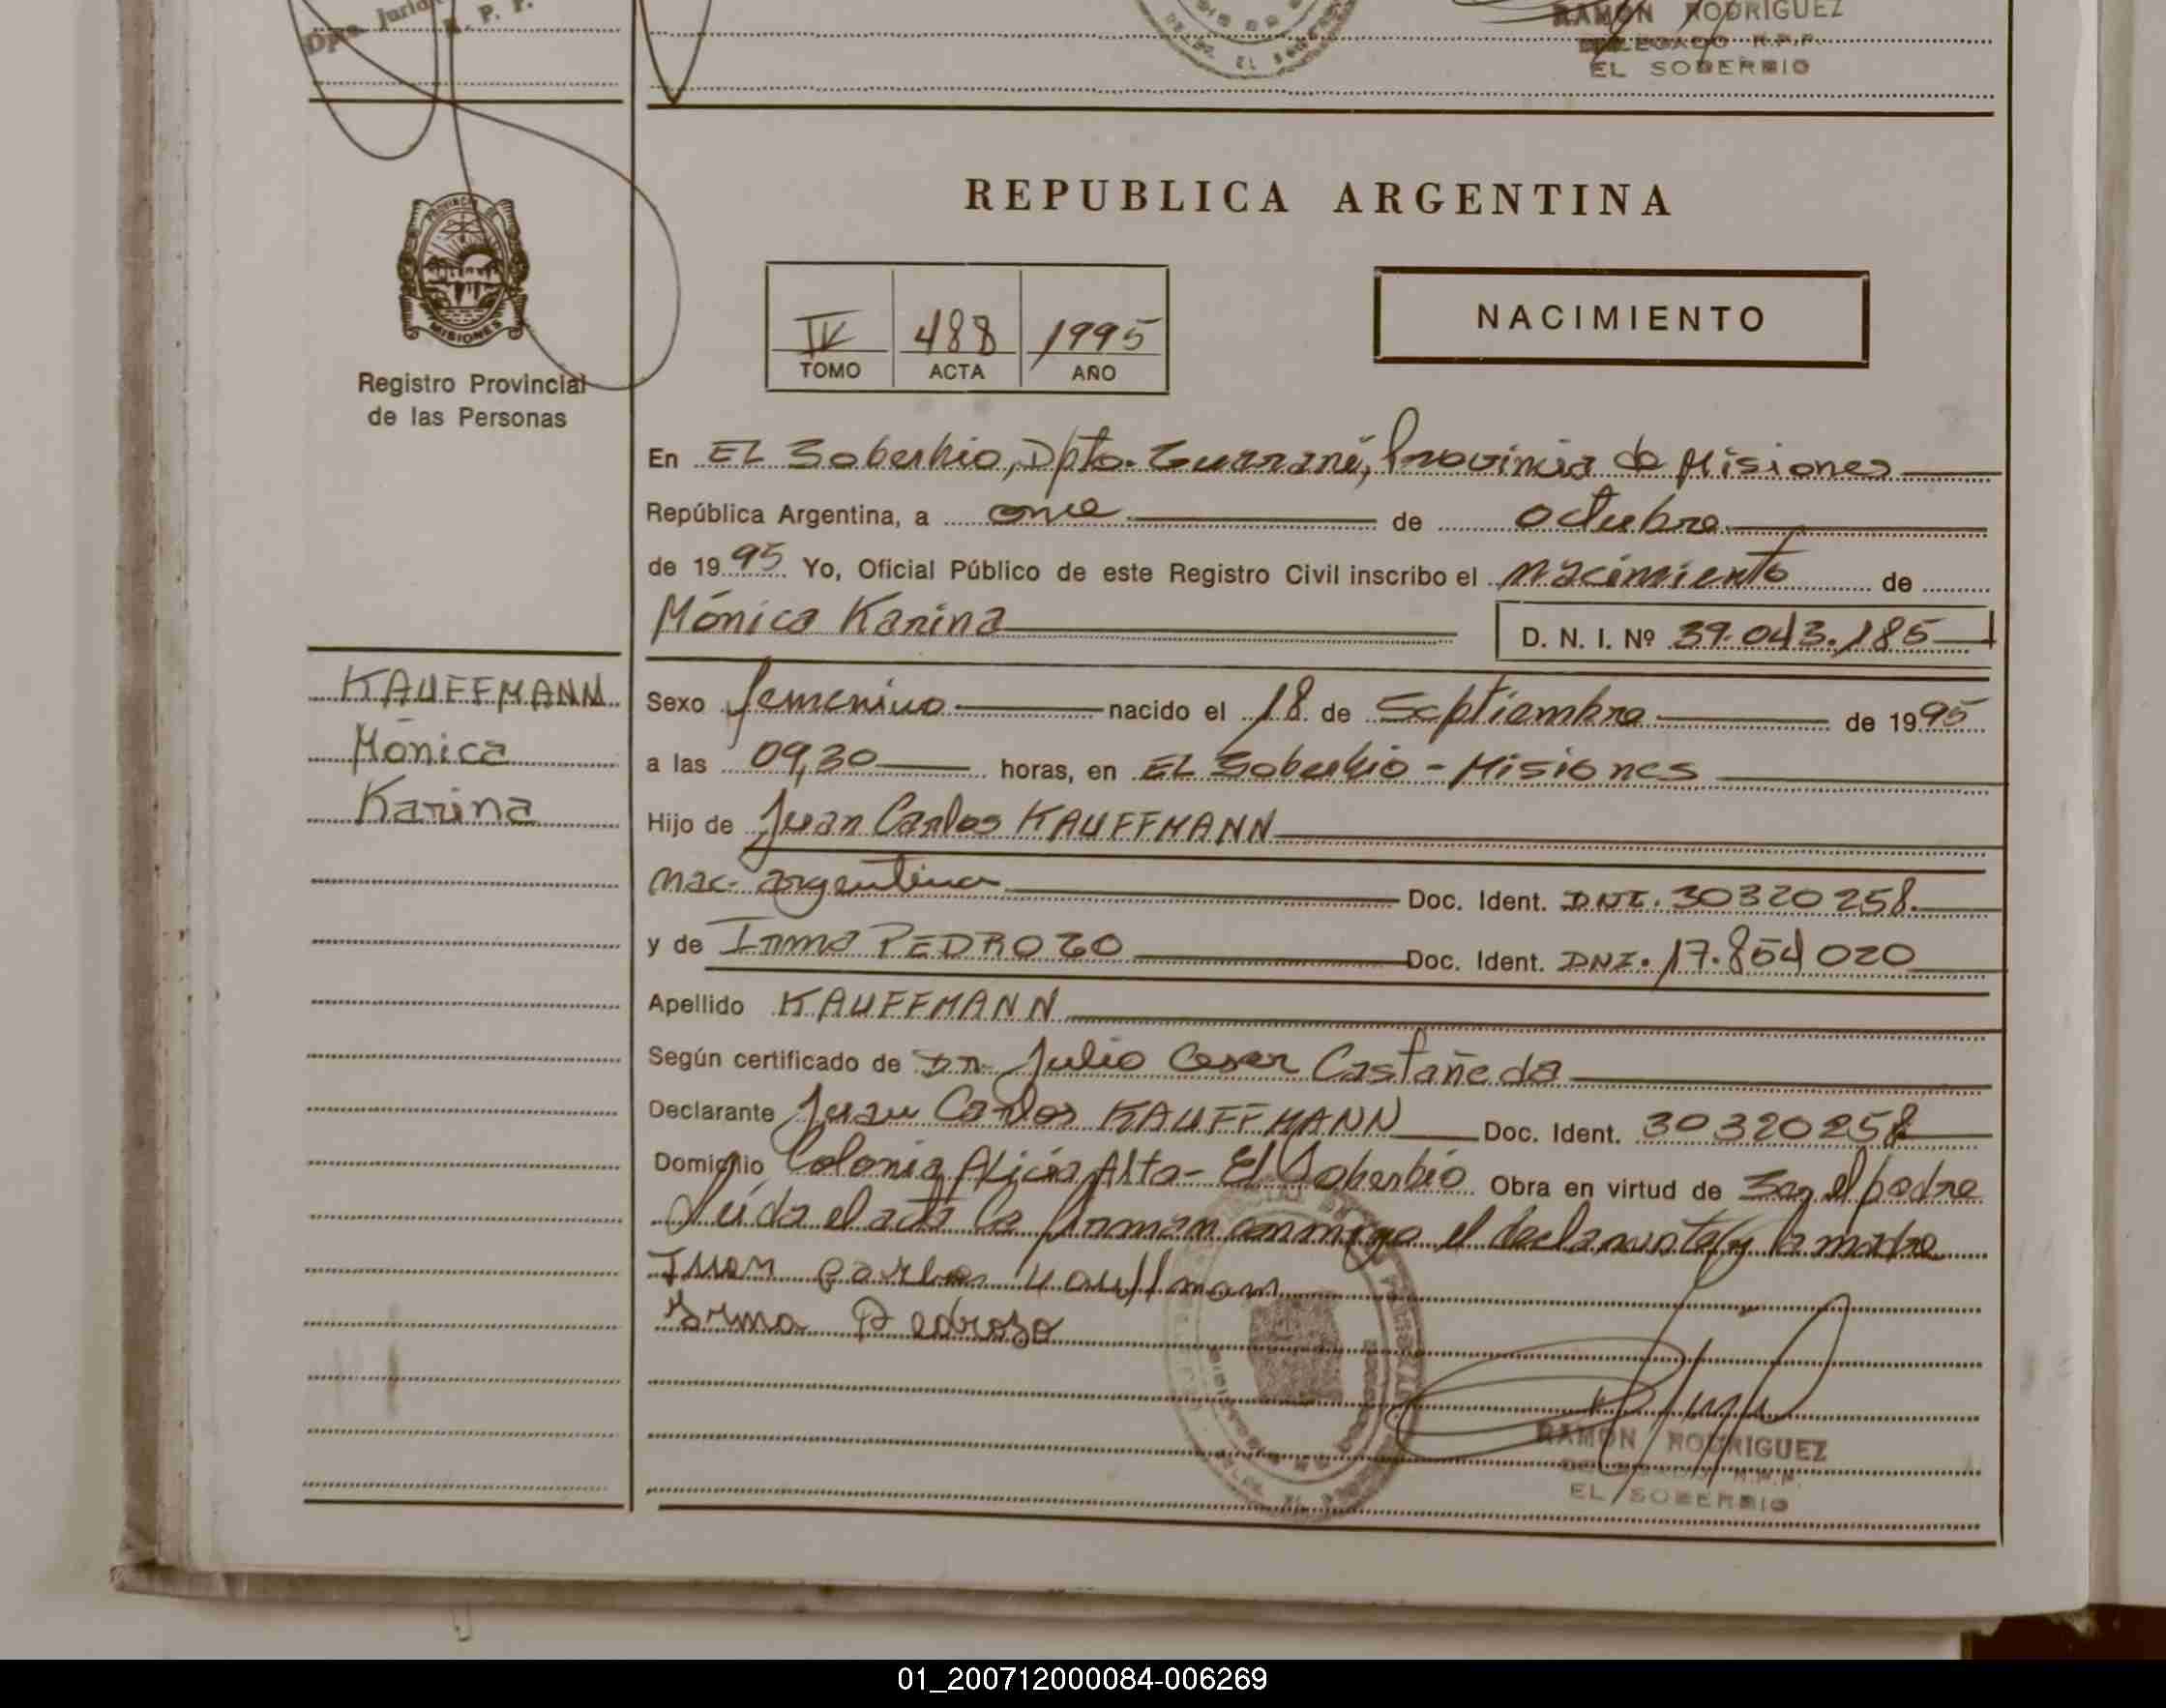 Dpto. Juríd
R. P. P.
RAMON RODRIGUEZ
DELEGADO R.P.P.
EL SOBERBIO
REPUBLICA ARGENTINA
PROVINCIA DE
MISIONES
Registro Provincial
de las Personas
IV 488 1995
TOMO ACTA AÑO
NACIMIENTO
En EL Soberbio, Dpto. Guaraní, Provincia de Misiones
República Argentina, a once de octubre
de 1995 Yo, Oficial Público de este Registro Civil inscribo el nacimiento de
Mónica Karina D. N. I. Nº 39.043.185
KAUFFMANN
Mónica
Karina
Sexo femenino nacido el 18 de Septiembre de 1995
a las 09,30 horas, en EL Soberbio - Misiones
Hijo de Juan Carlos KAUFFMANN
nac. argentina Doc. Ident. DNI. 30320258
y de Irma PEDROZO Doc. Ident. DNI. 17.854020
Apellido KAUFFMANN
Según certificado de Dr. Julio Cesar Castañeda
Declarante Juan Carlos KAUFFMANN Doc. Ident. 30320258
Domicilio Colonia Alicia Alta - El Soberbio Obra en virtud de Ser el padre
Leída el acta la firman conmigo el declarante y la madre
Juan Carlos Kauffman
Irma Pedrozo
RAMON RODRIGUEZ
EL SOBERBIO
01_200712000084-006269